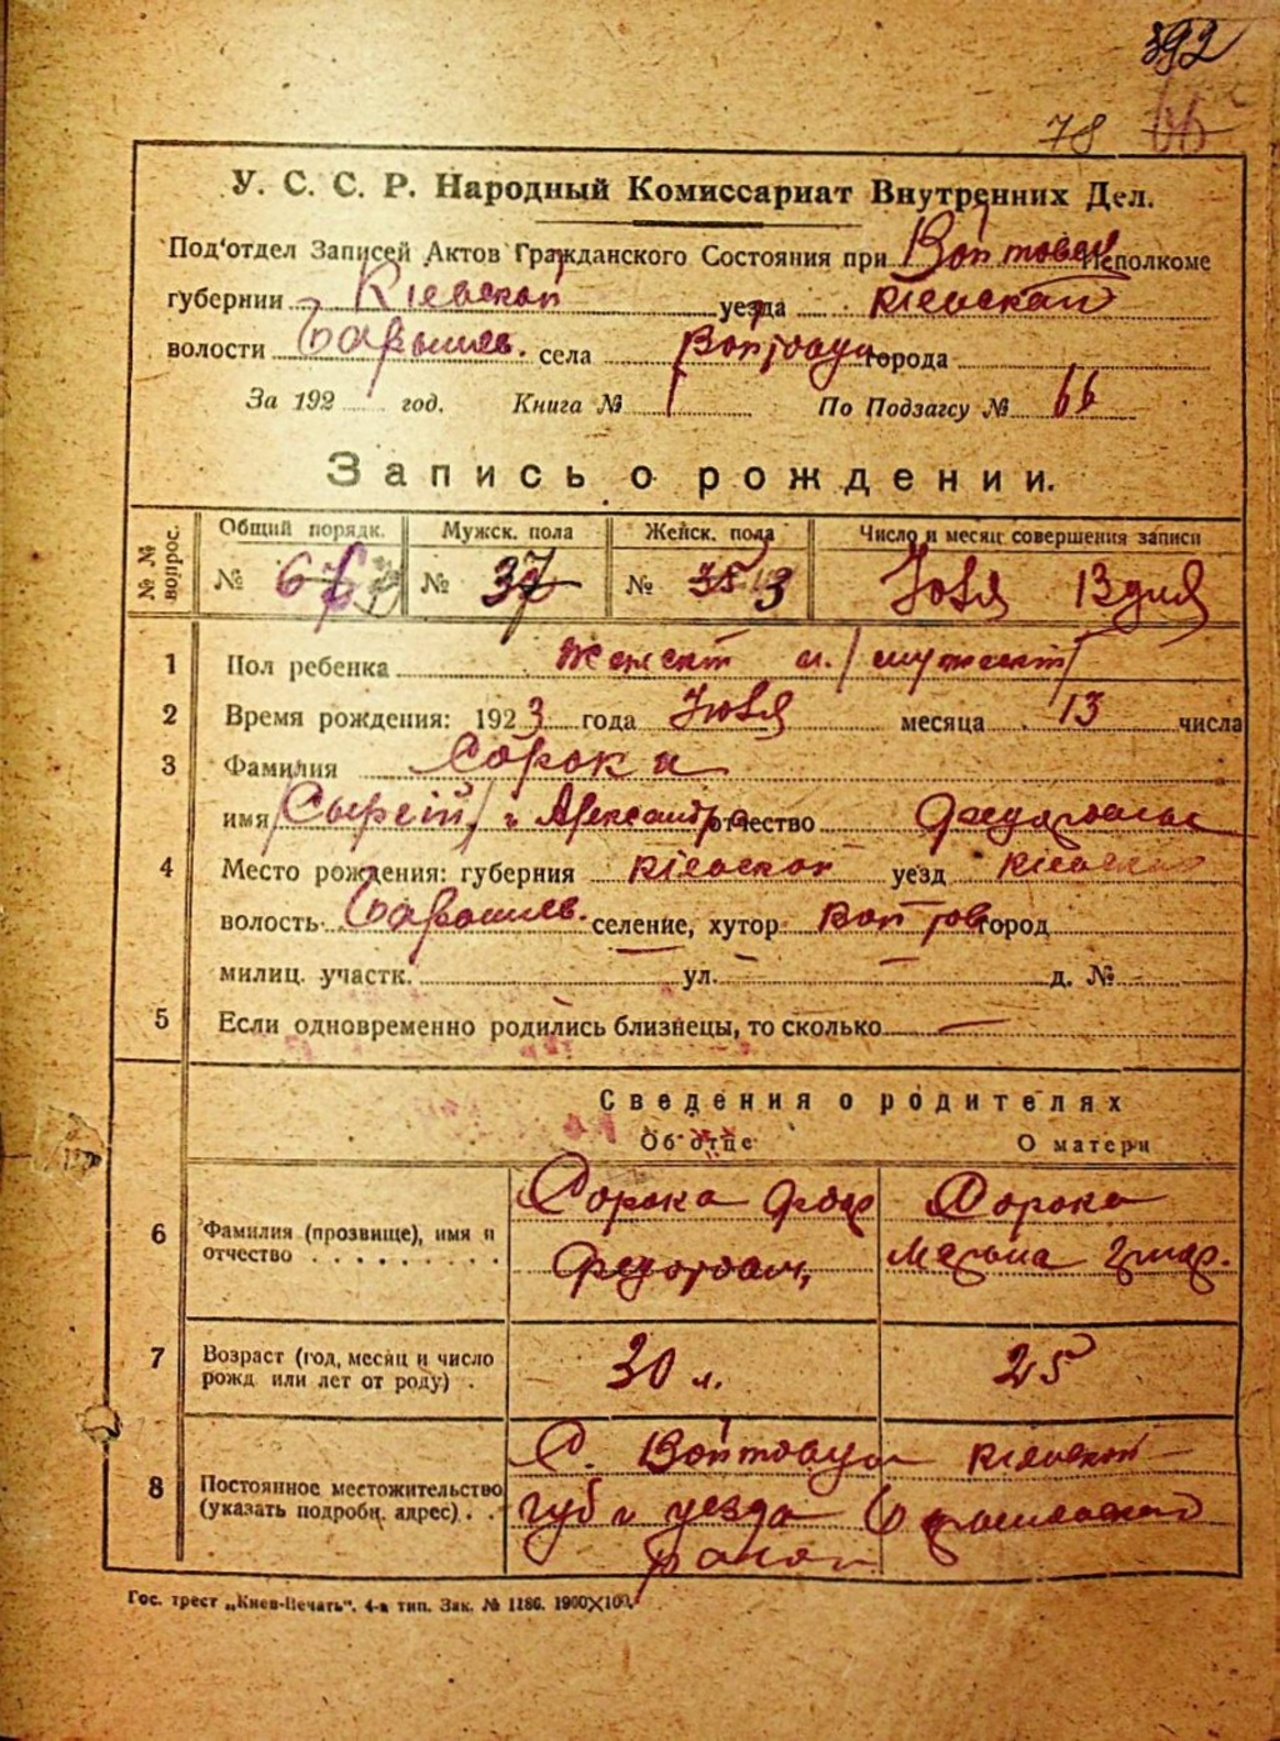 392
78 66
У. С. С. Р. Народный Комиссариат Внутренних Дел.
Под'отдел Записей Актов Гражданского Состояния при Войтовец Исполкоме
губернии Кіевской уезда Кіевской
волости Барышев. села города
За 192 год. Книга № 1 По Подзагсу № 66
Запись о рождении.
№ № вопрос.
Общий порядк. Мужск. пола Женск. пола Число и месяц совершения записи
№ № 37 № 35 Юля 13 дня
1 Пол ребенка Женскт и /мужскт/
2 Время рождения: 1923 года Юля месяца 13 числа
3 Фамилия Сорока
имя /Сыргій/ и Александр отчество
4 Место рождения: губерния Кіевской уезд Кіевской
волость Барышев. селение, хутор Войтов город
милиц. участк. — ул. — — д. №
5 Если одновременно родились близнецы, то сколько —
Сведения о родителях
Об отце О матери
6 Фамилия (прозвище), имя и отчество
Сорока Сорока
7 Возраст (год, месяц и число рожд или лет от роду) . 30 л. 25
8 Постоянное местожительство (указать подробн. адрес) . .
С. Войтовцы Кіевской
губ и уезда Барышевской
район
Гос. трест „Киев-Печать". 4-я тип. Зак. № 1186. 1900×100.